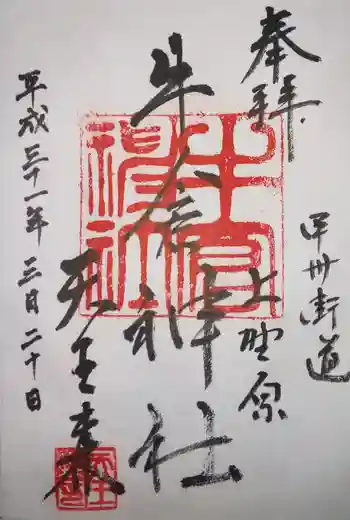 奉拝
甲州街道
上野原
牛倉神社
天王森
平成三十一年三月二十日
牛倉
神社